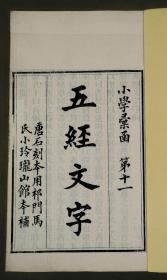 小學彙函 第十一
五經文字
唐石刻本用祁門馬
氏小玲瓏山館本補